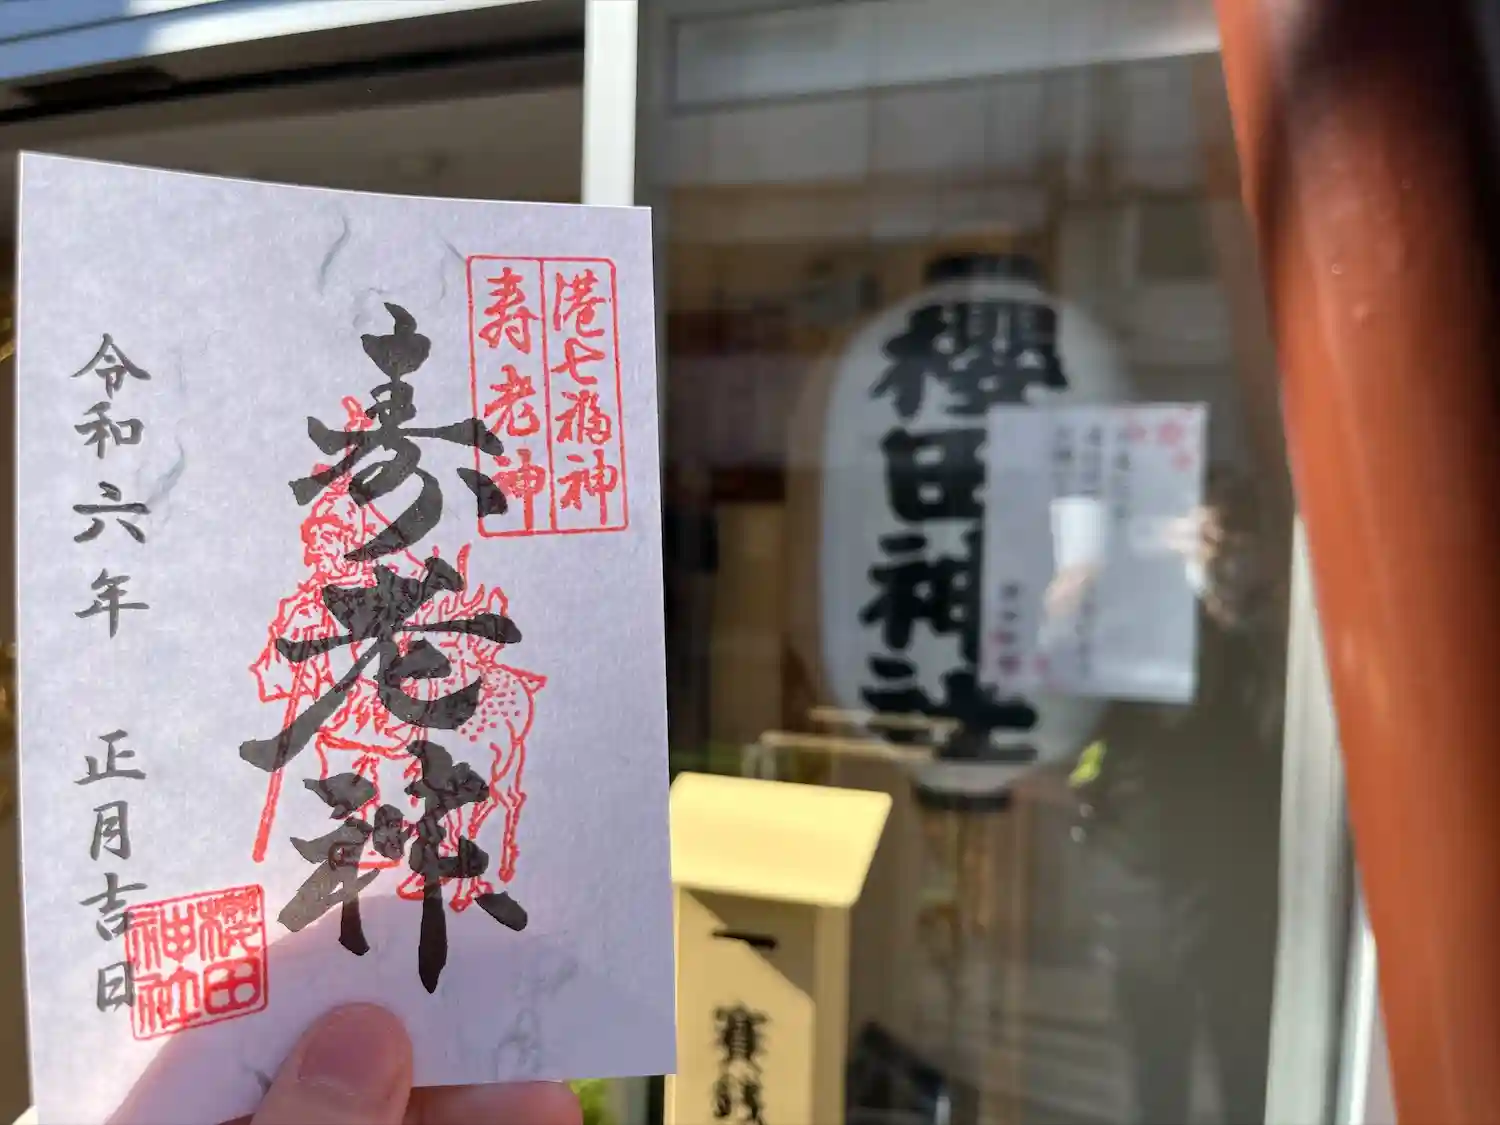 港七福神
寿老神
寿老神
令和六年 正月吉日
櫻田神社
櫻田神社
賽銭